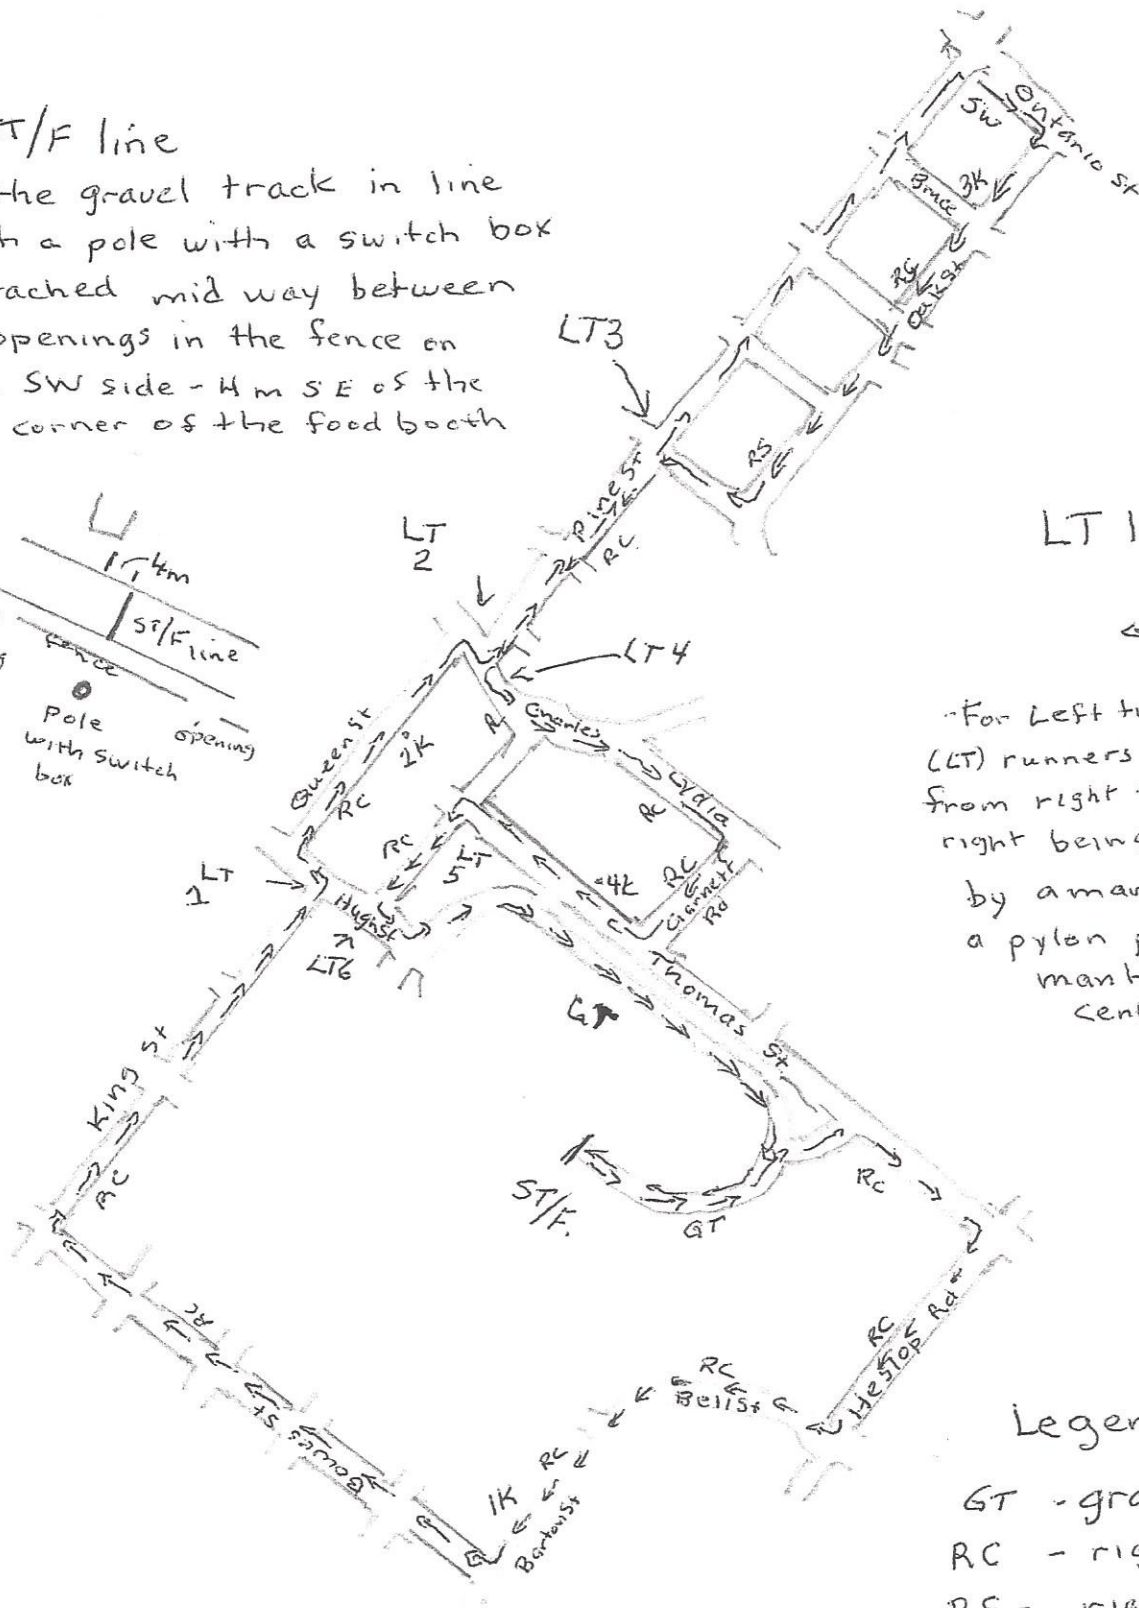 T/F line
the gravel track in line
h a pole with a switch box
ached mid way between
openings in the fence on
SW side - 4m SE of the
corner of the food booth
4m
ST/F line
fence
Pole
with switch
box
opening
Ontario St
SW
3K
Bruce
RS
Oak St
LT3
RS
Pine St
RC
LT
2
LT4
Charles
Lydia
RC
R
2K
Queen St
RC
RC
5
4K
RC
Gannett
Rd
LT
1
Hugh St
LT6
GT
Thomas St.
King St
RC
ST/F.
GT
RC
RC
Heslop Rd
RC
Bell St
RC
1K
Barton St
Bowes St
RC
LT 1
-For Left tu
(LT) runners
from right
right being
by a man
a pylon p
man
cen
Legen
GT - gra
RC - rig
RS - rig